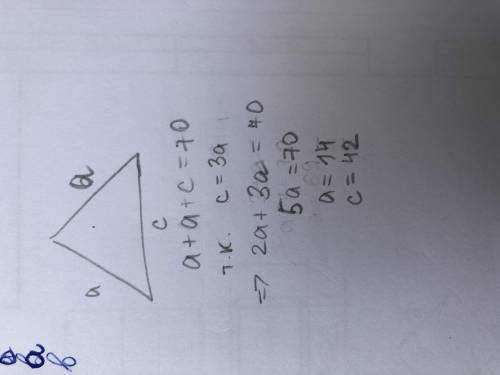 a
a
c
a + a + c = 70
т.к. c = 3a
=> 2a + 3a = 40
5a = 70
a = 14
c = 42